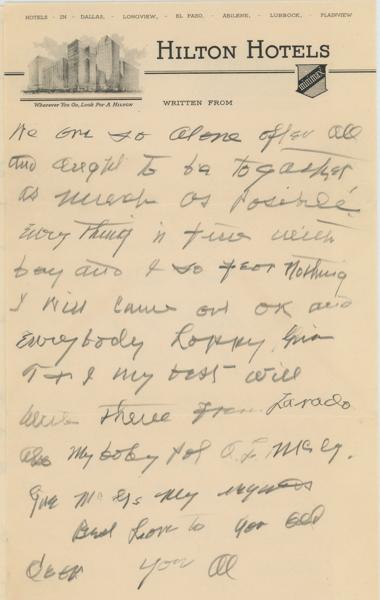 HOTELS - IN - DALLAS, - LONGVIEW, - EL PASO, - ABILENE, - LUBBOCK, - PLAINVIEW
HILTON HOTELS
minimax
Wherever You Go, Look For A HILTON
WRITTEN FROM
We are so alone after all
and aught to be togather
as much as Posible
Every Thing is fine with
boy and I so fear Nothing
I will come out OK and
Everybody Happy. Give
T + I my best will
write There from Larado
also My baby
Give my regards
Best Love to you all
Dear you Al